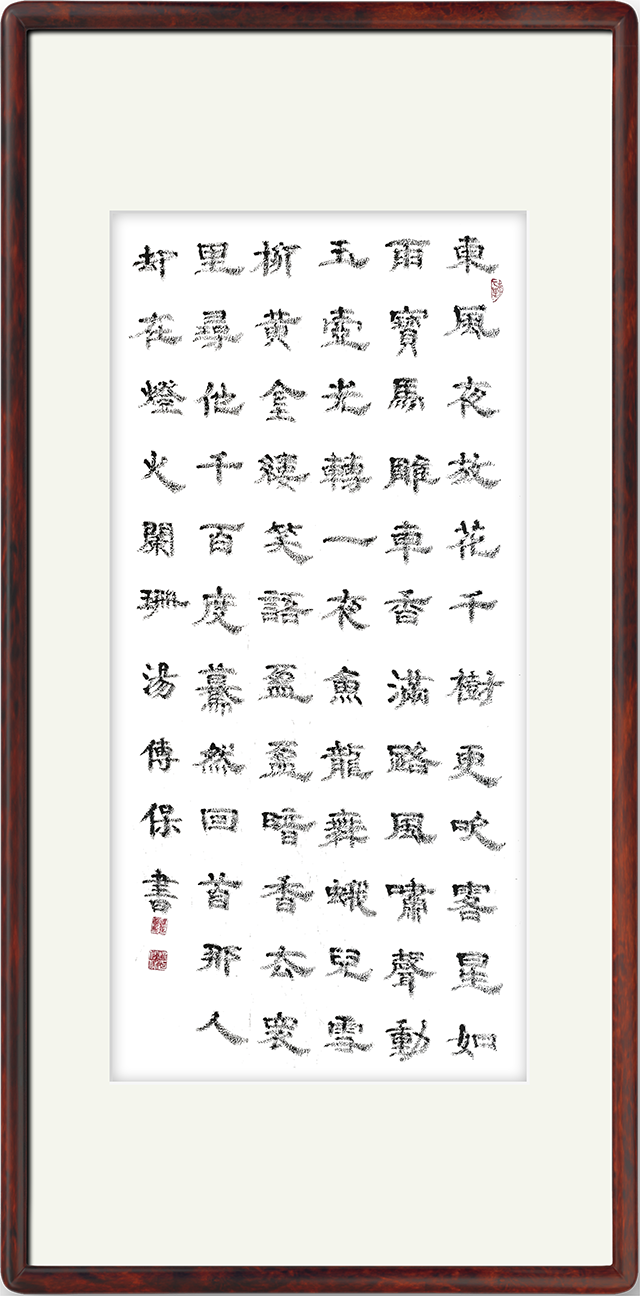 東風夜放花千樹更吹落星如
雨寶馬雕車香滿路風嘯聲動
玉壺光轉一夜魚龍舞蛾兒雪
柳黃金縷笑語盈盈暗香去衆
里尋他千百度驀然回首那人
却在燈火闌珊湯傳保書